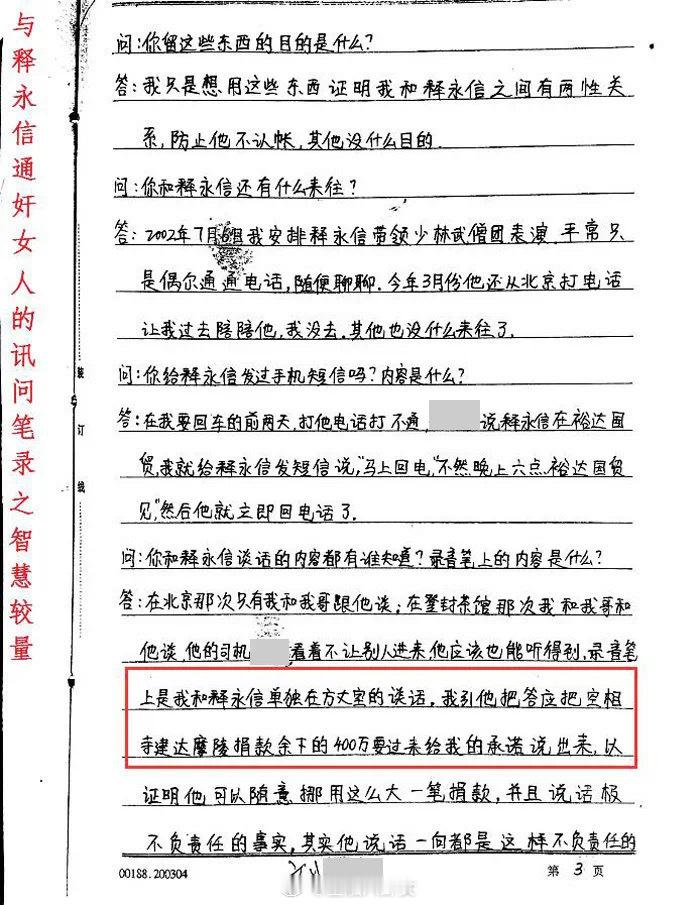 与释永信通奸女人的讯问笔录之智慧较量
问:你留这些东西的目的是什么?
答:我只是想用这些东西证明我和释永信之间有两性关
系,防止他不认帐,其他没什么目的.
问:你和释永信还有什么来往?
答:2002年7月 我安排释永信带领少林武僧团表演.平常只
是偶尔通通电话,随便聊聊.今年3月份他还从北京打电话
让我过去陪陪他,我没去.其他也没什么来往了.
问:你给释永信发过手机短信吗?内容是什么?
答:在我要回车的前两天,打他电话打不通, 说释永信在裕达国
贸,我就给释永信发短信说,"马上回电,"不然晚上六点.裕达国贸
见,"然后他就立即回电话了.
问:你和释永信谈话的内容都有谁知道?录音笔上的内容是什么?
答:在北京那次只有我和我哥跟他谈;在登封茶馆那次我和我哥和
他谈,他的司机 看着不让别人进来,他应该也能听得到,录音笔
上是我和释永信单独在方丈室的谈话.我引他把答应把空相
寺建达摩陵捐款余下的400万要过来给我的承诺说出来,以
证明他可以随意挪用这么大一笔捐款,并且说话极
不负责任的事实,其实他说话一向都是这样不负责任的
装
订
线
00188.200304
第 3 页